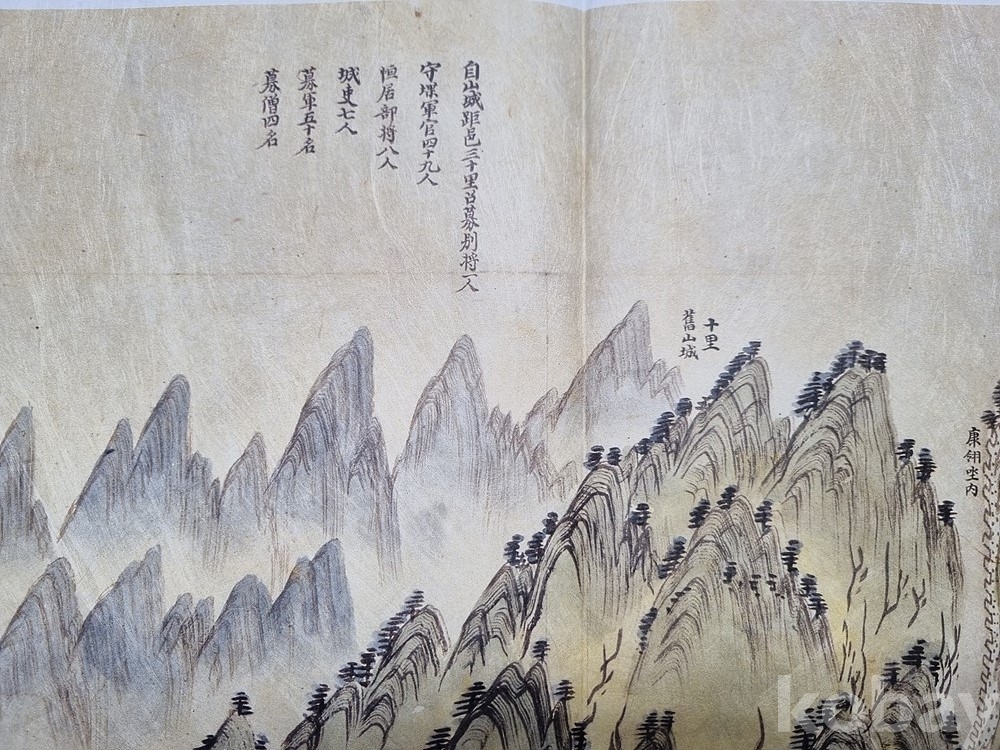 自山城距邑三十里召募別將一人
守堞軍官四十九人
恒居部將八人
城吏七人
募軍五十名
募僧四名
十里
舊山城
康翎坐内
kobay